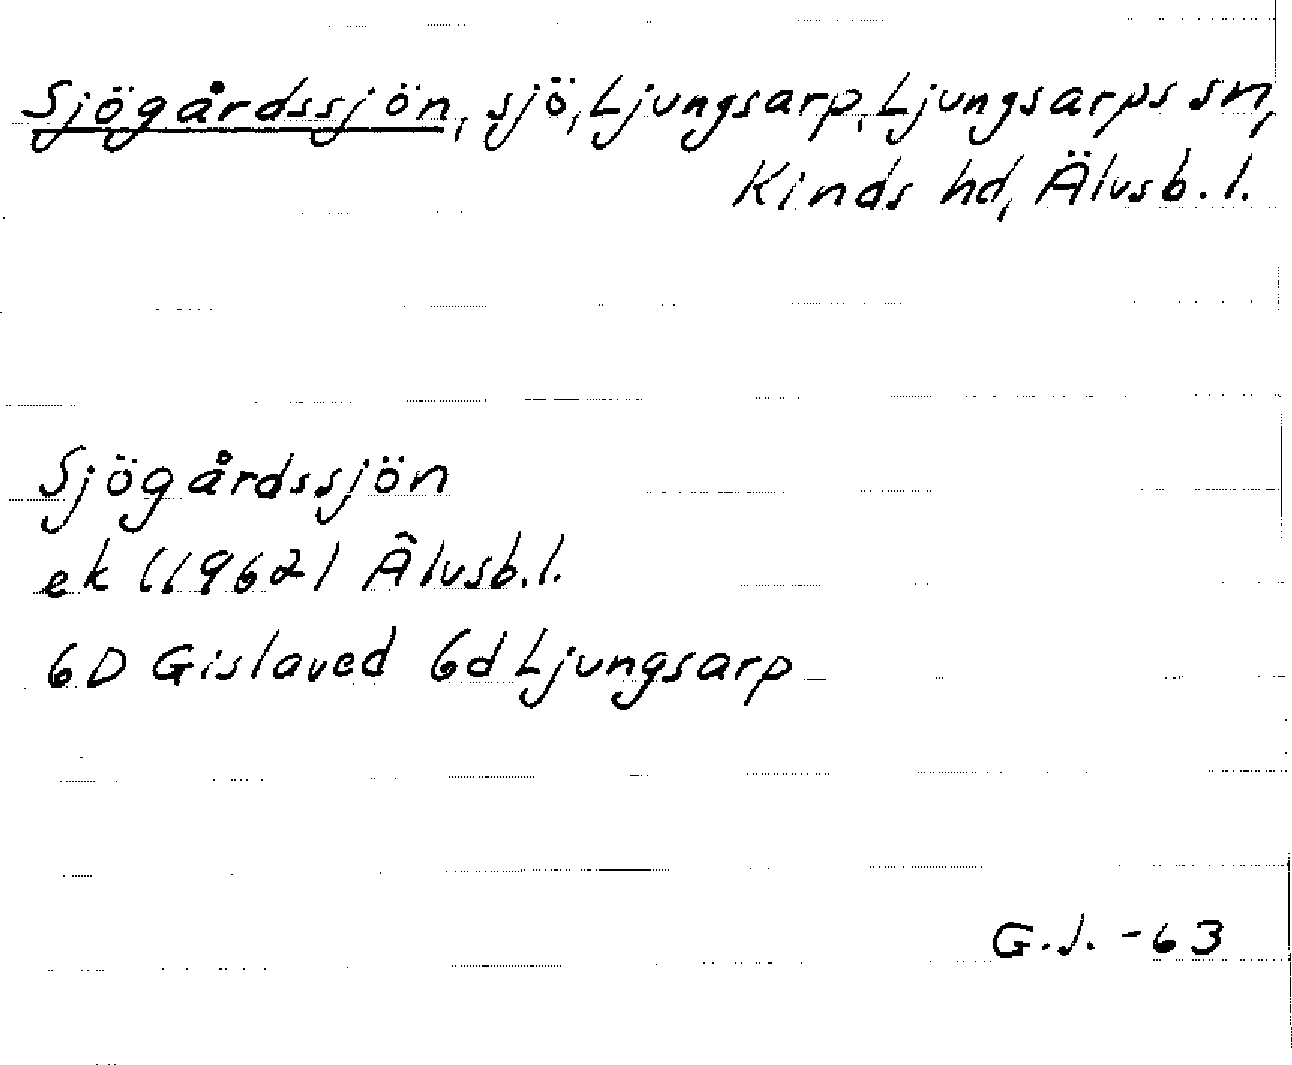 Sjögårdssjön, sjö, Ljungsarp, Ljungsarps sn,
Kinds hd, Älvsb. l.
Sjögårdssjön
ek (1962) Älvsb. l.
6D Gislaved 6d Ljungsarp
G. J. -63